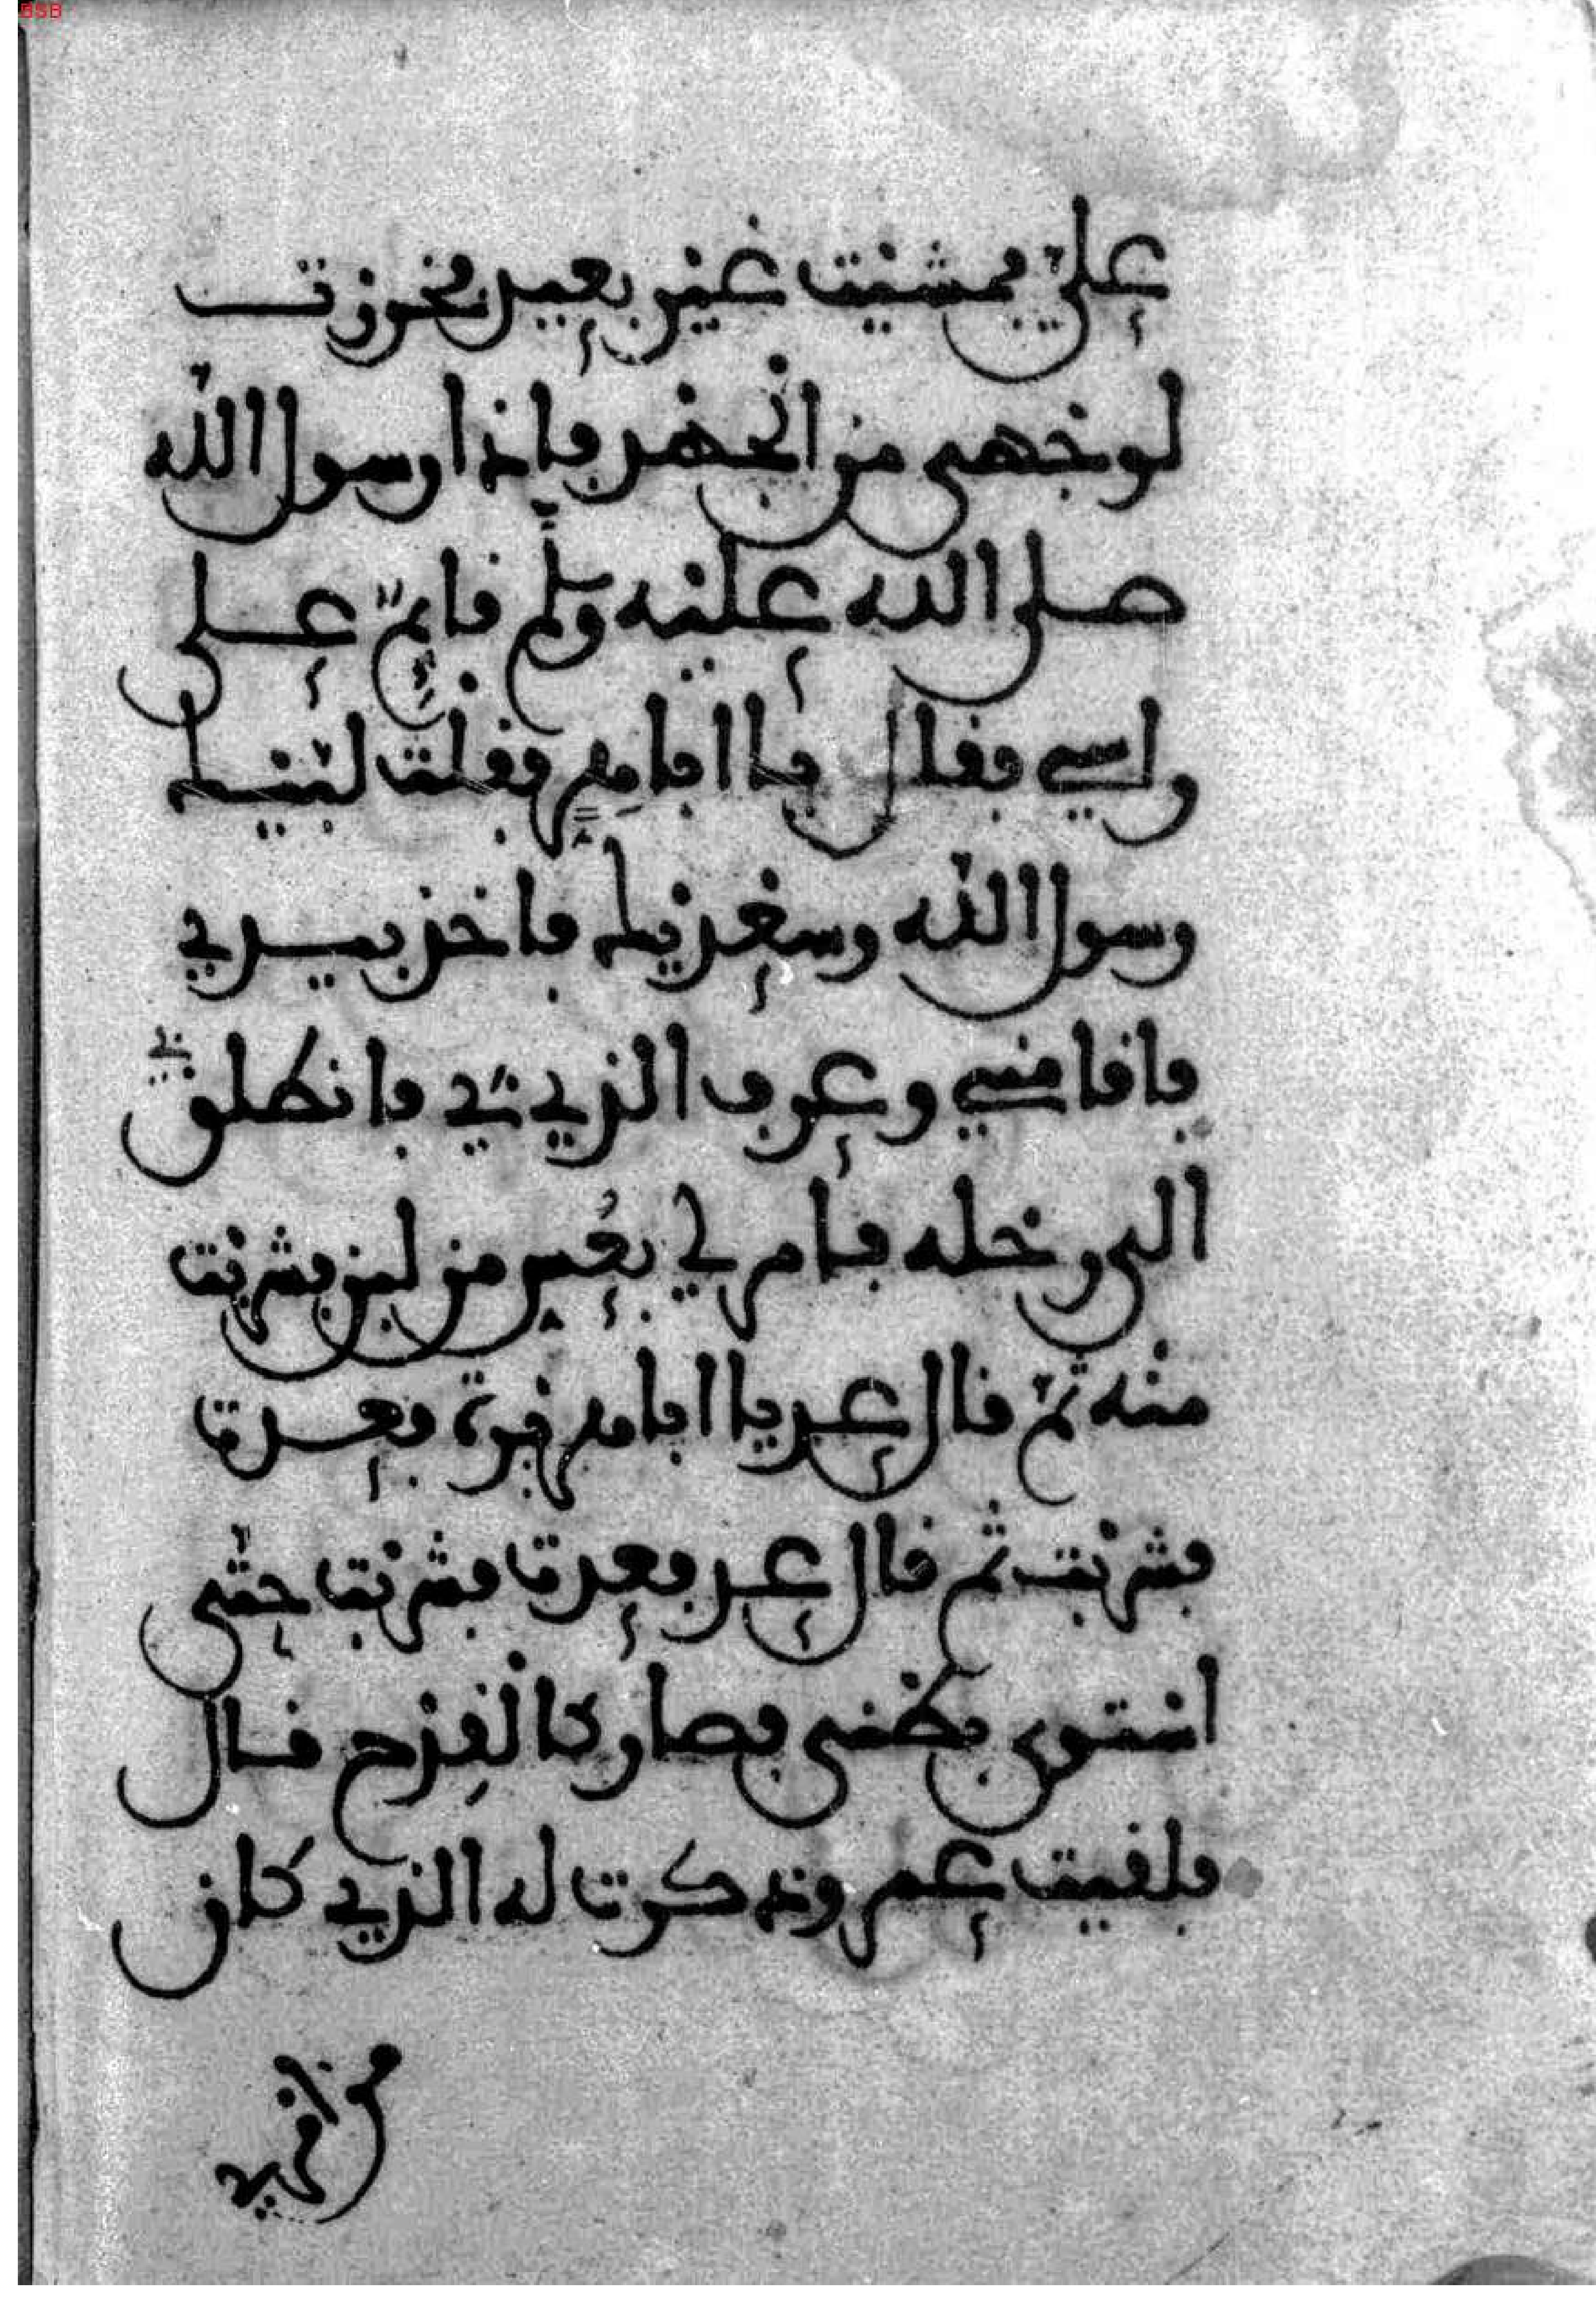 BSB
علي فمشيت غير بعيد فخررت
لوجهي من الجهد فاذا رسول الله
صلى الله عليه وسلم قايم على
راسي فقال يا ابا هر فقلت لبيك
رسول الله وسعديك فاخذ بيدي
فاقامني وعرف الذي بي فانطلق بي
الى رحله فامر لي بعس من لبن فشربت
منه ثم قال عد يا ابا هر فعدت
فشربت ثم قال عد فعدت فشربت حتى
استوى بطني فصار كالقدح قال
فلقيت عمر وذكرت له الذي كان
من امري